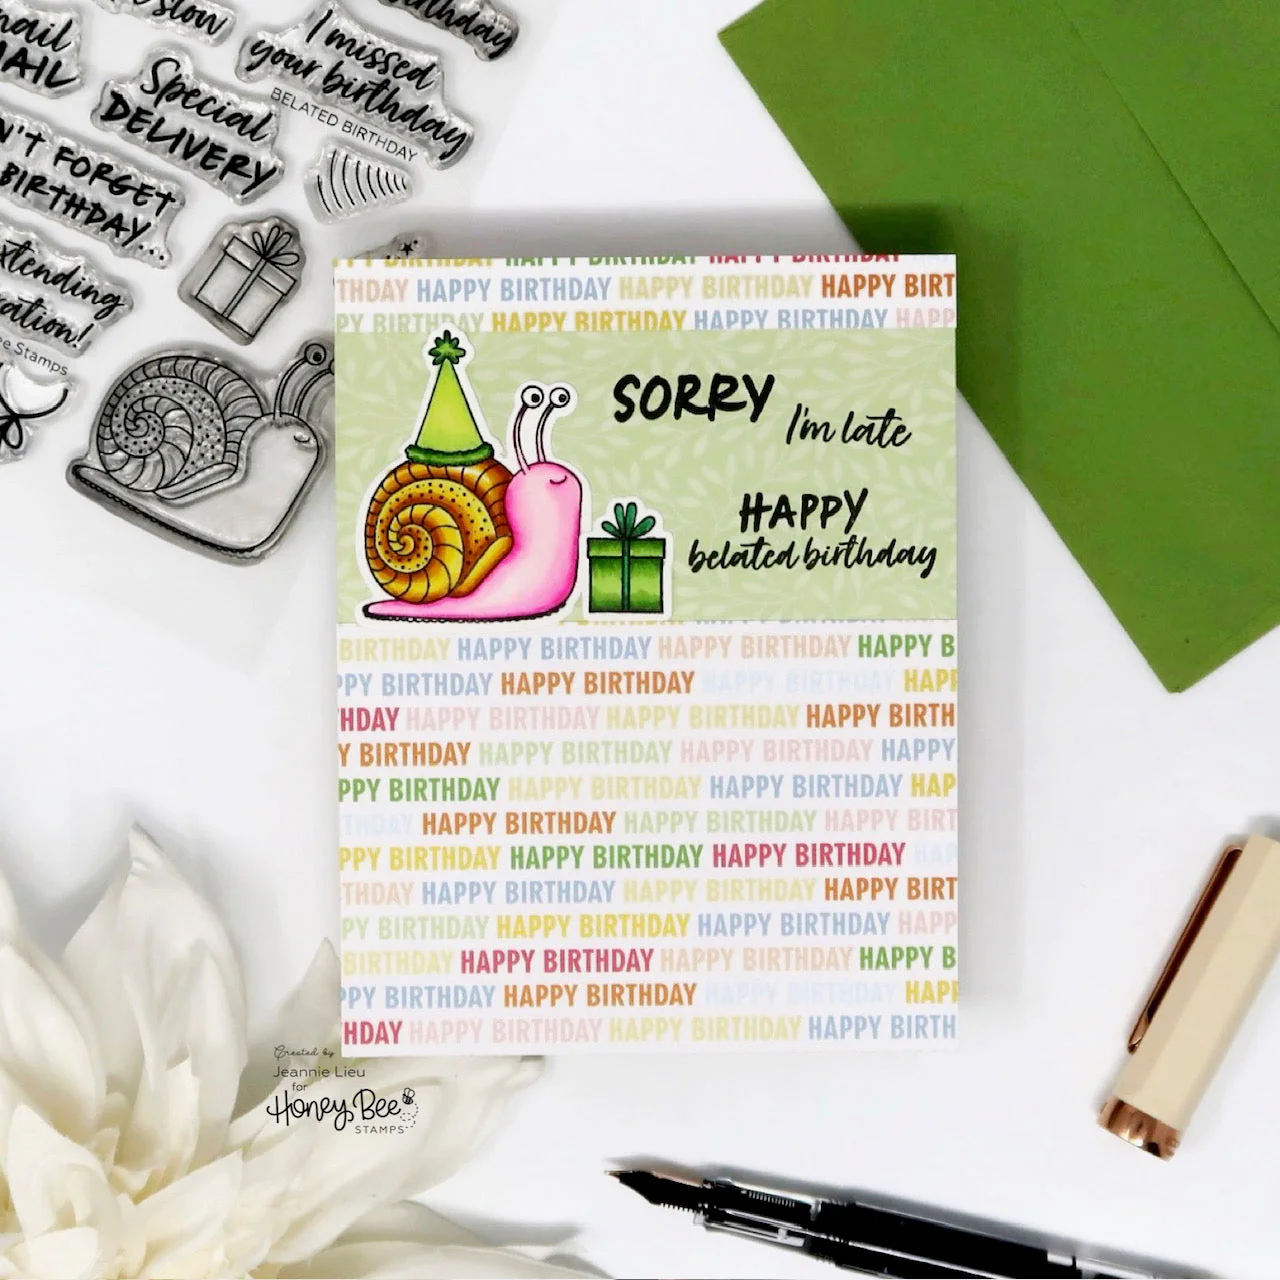 slow
I missed
your birthday
BELATED BIRTHDAY
birthday
Special
DELIVERY
FORGET
BIRTHDAY...
Stamps
HAPPY BIRTHDAY HAPPY BIRTHDAY
HAPPY BIRTHDAY HAPPY BIRTHDAY HAPPY BIRT
PY BIRTHDAY HAPPY BIRTHDAY HAPPY BIRTHDAY HAPP
SORRY
I'm late
HAPPY
belated birthday
BIRTHDAY HAPPY BIRTHDAY HAPPY BIRTHDAY HAPPY B
PPY BIRTHDAY HAPPY BIRTHDAY HAPPY BIRTHDAY HAPP
HDAY HAPPY BIRTHDAY HAPPY BIRTHDAY HAPPY BIRTH
Y BIRTHDAY HAPPY BIRTHDAY HAPPY BIRTHDAY HAPPY
PPY BIRTHDAY HAPPY BIRTHDAY HAPPY BIRTHDAY HAP
THDAY HAPPY BIRTHDAY HAPPY BIRTHDAY HAPPY BIRT
PPY BIRTHDAY HAPPY BIRTHDAY HAPPY BIRTHDAY HAP
THDAY HAPPY BIRTHDAY HAPPY BIRTHDAY HAPPY BIRT
PY BIRTHDAY HAPPY BIRTHDAY HAPPY BIRTHDAY HAPP
BIRTHDAY HAPPY BIRTHDAY HAPPY BIRTHDAY HAPPY B
PPY BIRTHDAY HAPPY BIRTHDAY HAPPY BIRTHDAY HAPP
HDAY HAPPY BIRTHDAY HAPPY BIRTHDAY HAPPY BIRTH
Created by
Jeannie Lieu
for
Honey Bee
STAMPS